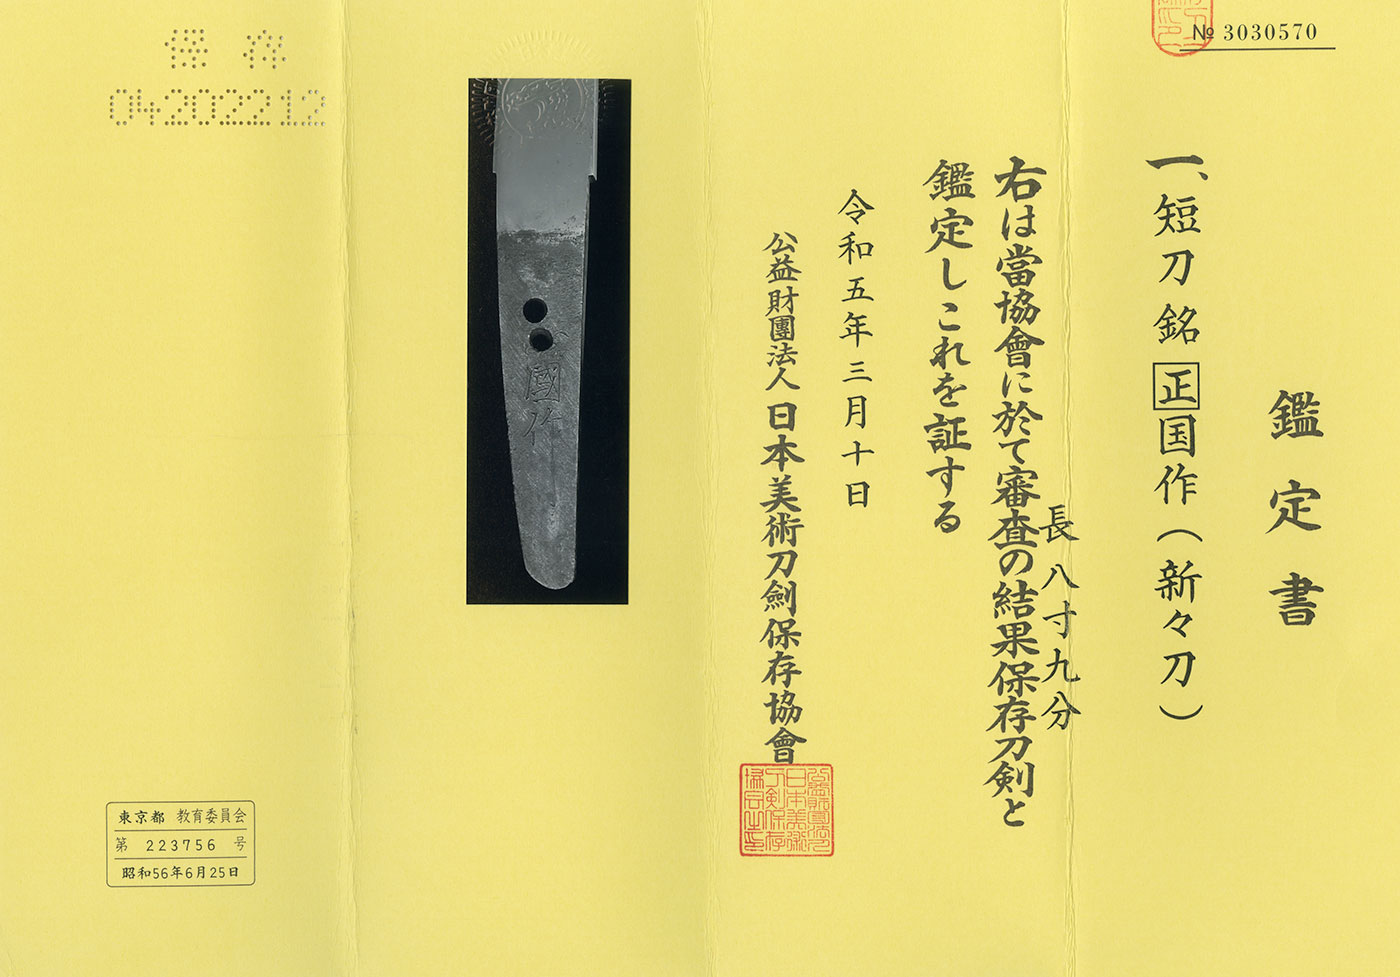 № 3030570
鑑定書
一、短刀 銘 正国作（新々刀）
長 八寸九分
右は當協會に於て審査の結果保存刀剣と
鑑定しこれを証する
令和五年三月十日
公益財團法人日本美術刀劍保存協會
國作
保存
04202212
東京都 教育委員会
第 223756 号
昭和56年6月25日